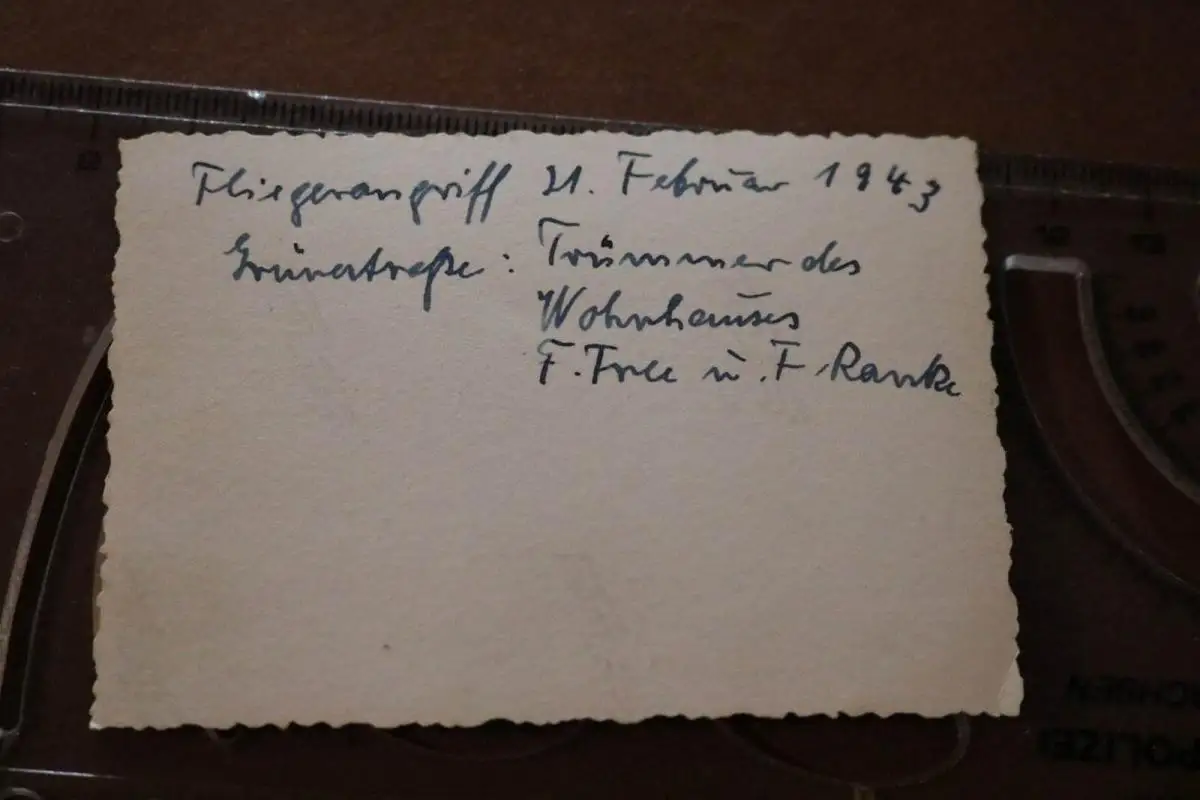 Fliegerangriff 21. Februar 1943
Grünestraße: Trümmer des
Wohnhauses
F. Free u. F. Ranke
POLIZEI